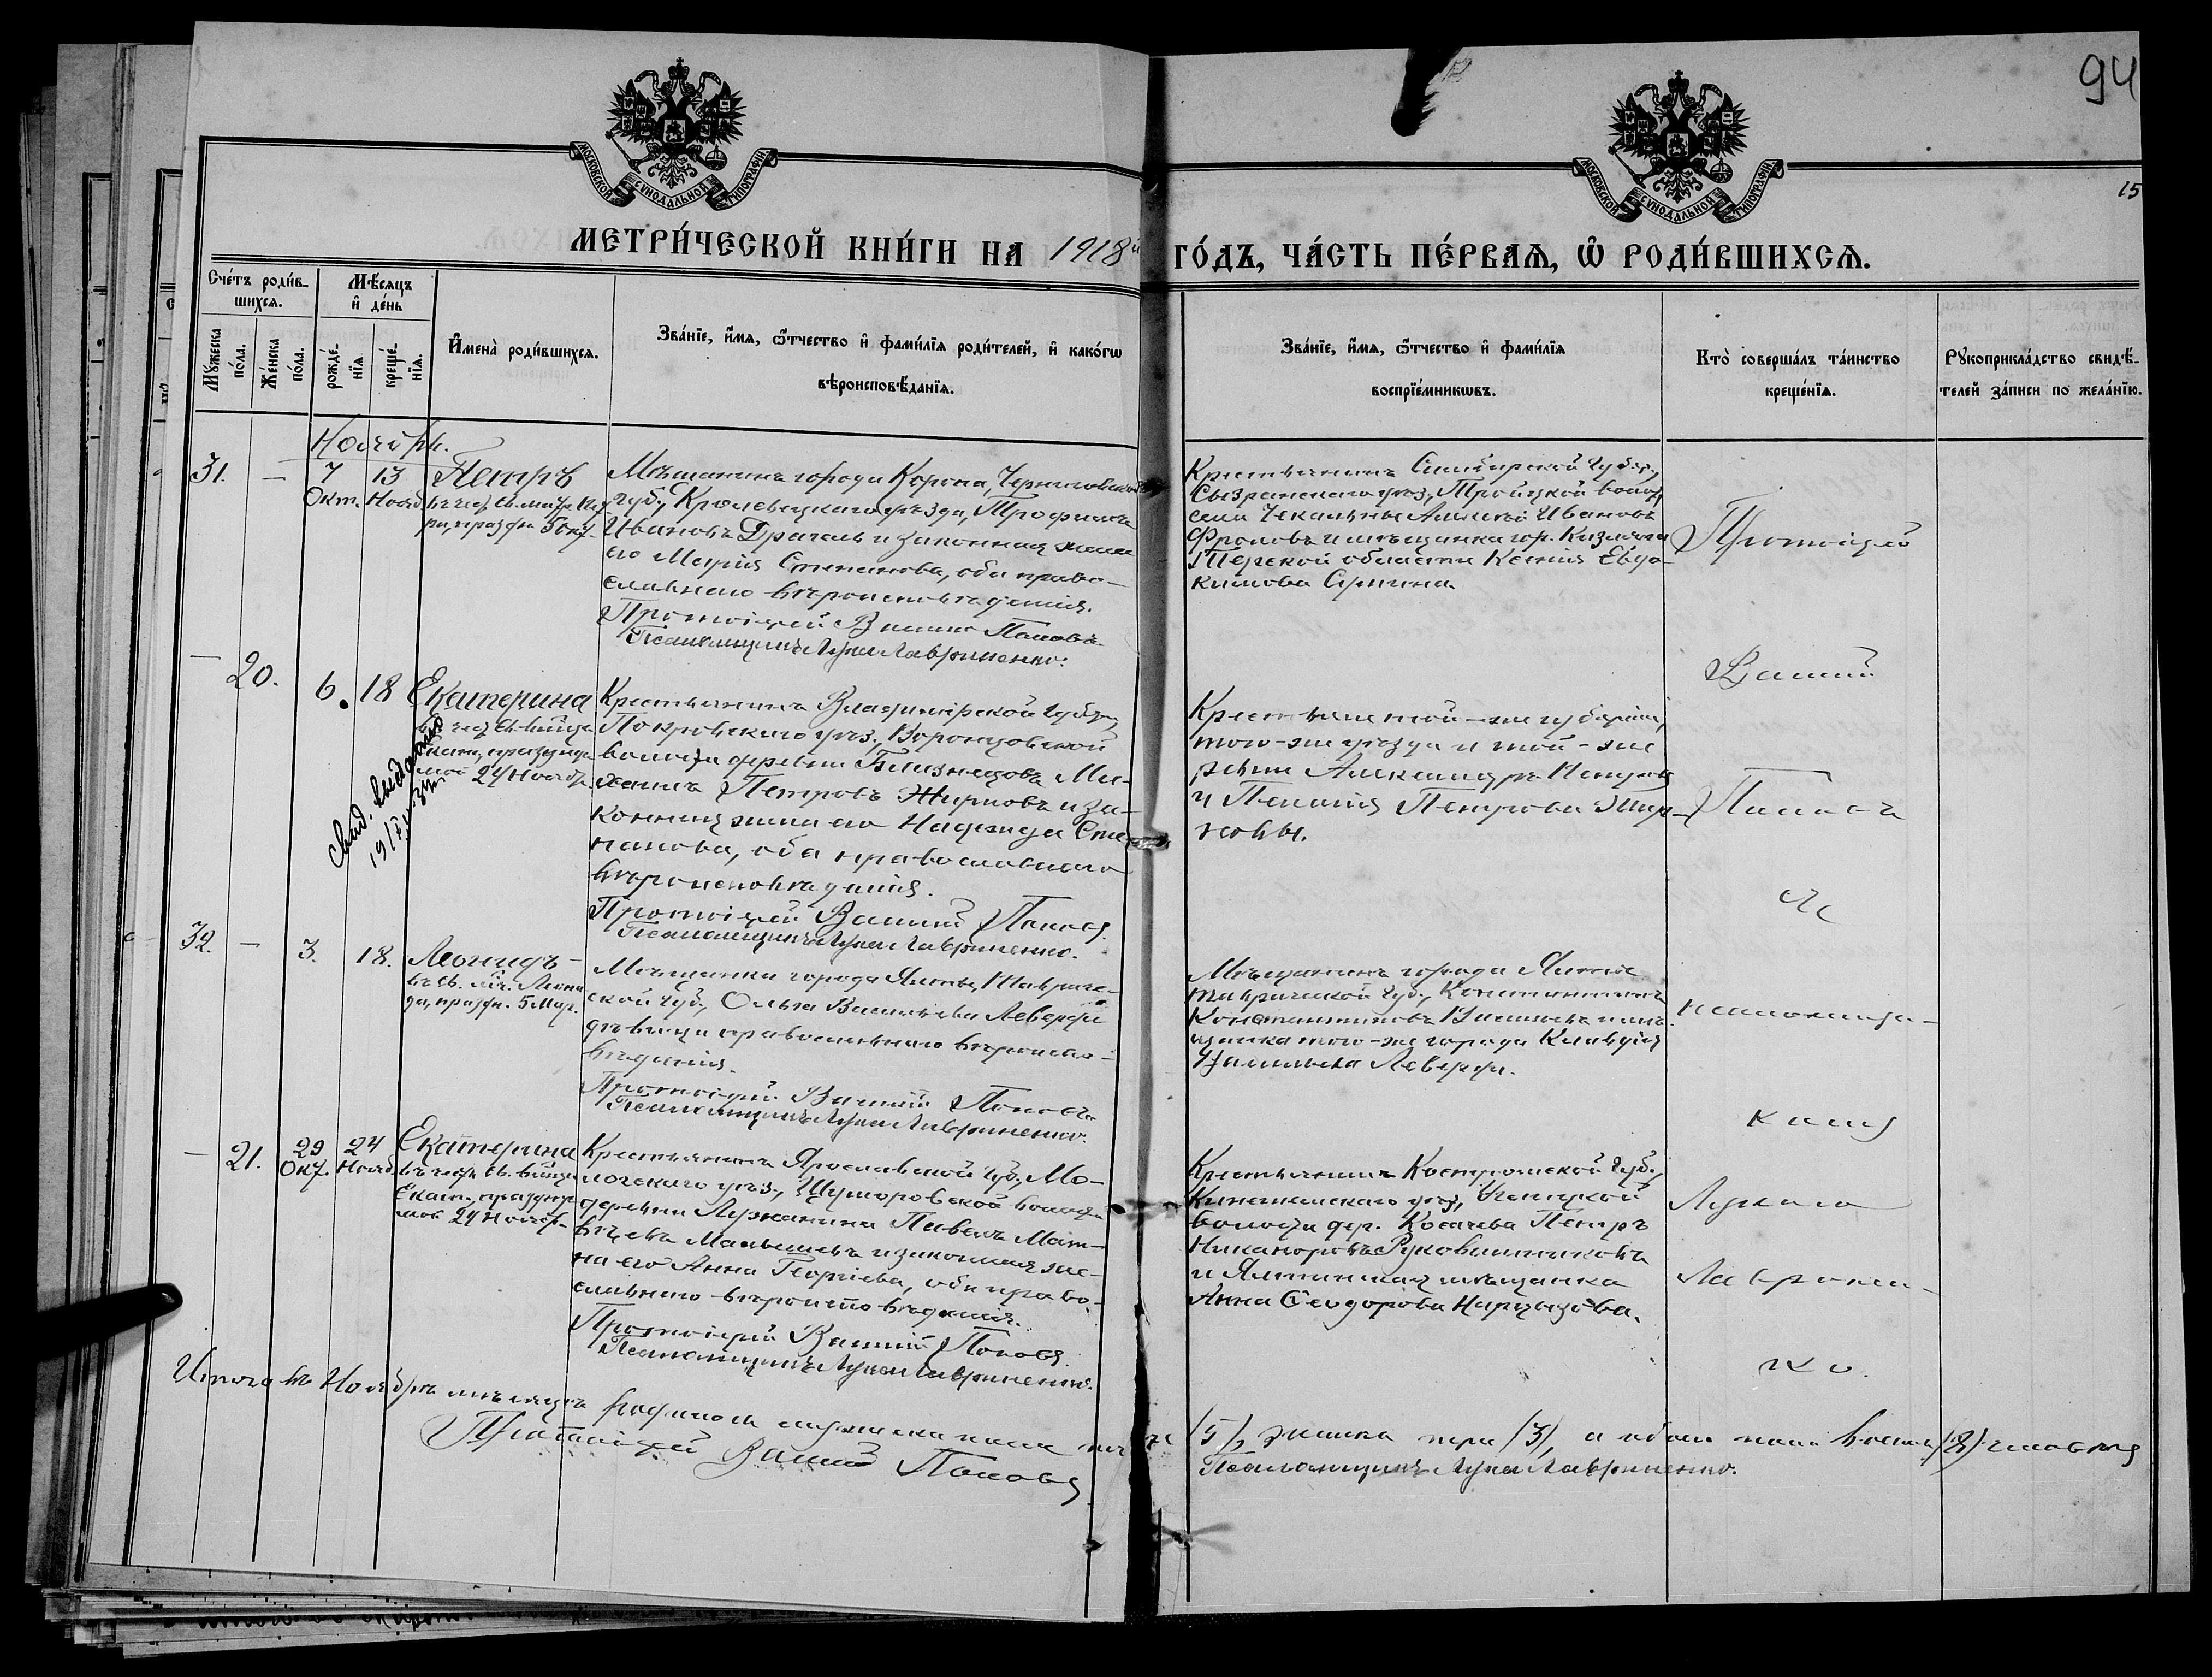 94
15
МОСКОВСКОЙ СѴНОДАЛЬНОЙ ТИПОГРАФІИ
МОСКОВСКОЙ СѴНОДАЛЬНОЙ ТИПОГРАФІИ
МЕТРИ́ЧЕСКОЙ КНИ́ГИ НА 1918й ГО́ДЪ, ЧА́СТЬ ПЕ́РВАѦ, Ѽ РОДИ́ВШИХСѦ.
Сче́тъ роди́в-
шихсѧ.
Мѣ́сѧцъ
и҆ де́нь
Мꙋ́жеска
по́ла.
Же́нска
по́ла.
рожде́-
нїѧ
креще́-
нїѧ.
И҆мена̀ роди́вшихсѧ.
Зва́нїе, и҆́мѧ, ѻ҆́тчество и҆ фами́лїѧ роди́телей, и҆ како́гѡ
вѣроисповѣ́данїѧ.
Зва́нїе, и҆́мѧ, ѻ҆́тчество и҆ фами́лїѧ
воспрїе́мникѡвъ.
Кто̀ соверша́лъ та́инство
креще́нїѧ.
Рꙋкоприкла́дство свидѣ́-
телей за́писи по жела́нїю.
Ноябрь.
31.
—
7
Окт.
13
Нояб.
Петръ
Мѣщанинъ города Коропа, Черниговской
губ., Кролевецкаго уѣзда, Трофимъ
Ивановъ Драгаль и законная жена
его Марія Степанова, оба право-
славнаго вѣроисповѣданія.
Протоіерей Василій Поповъ.
Псаломщикъ Лука Лавриненко.
Крестьянинъ Симбирской губер.,
Сызранскаго уѣз., Троицкой волос.,
села Чекалина Алексѣй Ивановъ
Фроловъ и мѣщанка гор. Кизляра
Терской области Ксенія Евдо-
кимова
Протоіерей
—
20.
6.
18
Екатерина
въ чес. св. вмуч.
Екат., празднуе-
мой 24 Нояб.
Свид. выдано
Крестьянинъ Владимірской губер.,
Покровскаго уѣз., Воронцовской
волости деревни Близнецовъ Ми-
хаилъ Петровъ Жирновъ и за-
конная жена его Надежда Сте-
панова, оба православнаго
вѣроисповѣданія.
Протоіерей Василій Поповъ.
Псаломщикъ Лука Лавриненко.
Крестьяне той-же губерніи,
того-же уѣзда и той-же
Александръ Петровъ
и Пелагія Петрова Жир-
новы.
Василій
Поповъ
съ
32.
—
3.
18.
Леонидъ
въ св. Леони-
да, праздн. 5 Мар.
Мѣщанка города Ялты, Тавриче-
ской губ., Ольга Васильева
дѣвица православнаго вѣроиспо-
вѣданія.
Протоіерей Василій Поповъ
Псаломщикъ Лука Лавриненко.
Мѣщанинъ города Ялты
Таврической губ., Константинъ
Константиновъ Васильевъ и мѣ-
щанка того-же города Клавдія
Васильева
псаломщи-
комъ
—
21.
29
Окт.
24
Нояб.
Екатерина
въ честь св. вмуч.
Екат., празднуе-
мой 24 Нояб.
Крестьянинъ Ярославской губ., Мо-
логскаго уѣз., волости
деревни Павелъ Мат-
вѣевъ Малышевъ и законная же-
на его Анна Георгіева, оба право-
славнаго вѣроисповѣданія.
Протоіерей Василій Поповъ.
Псаломщикъ Лука Лавриненко.
Крестьянинъ Костромской губ.,
Кинешемскаго уѣз.,
волости дер. Косачева Петръ
Никаноровъ Рукавишниковъ
и Ялтинская мѣщанка
Анна Ѳеодорова
Лукою
Лавринен-
ко.
Итого въ Ноябрѣ мѣсяцѣ родилось мужеска пола пять /5/, женска три /3/, а обоего пола восемь /8/ человѣкъ
Протоіерей Василій Поповъ
Псаломщикъ Лука Лавриненко.